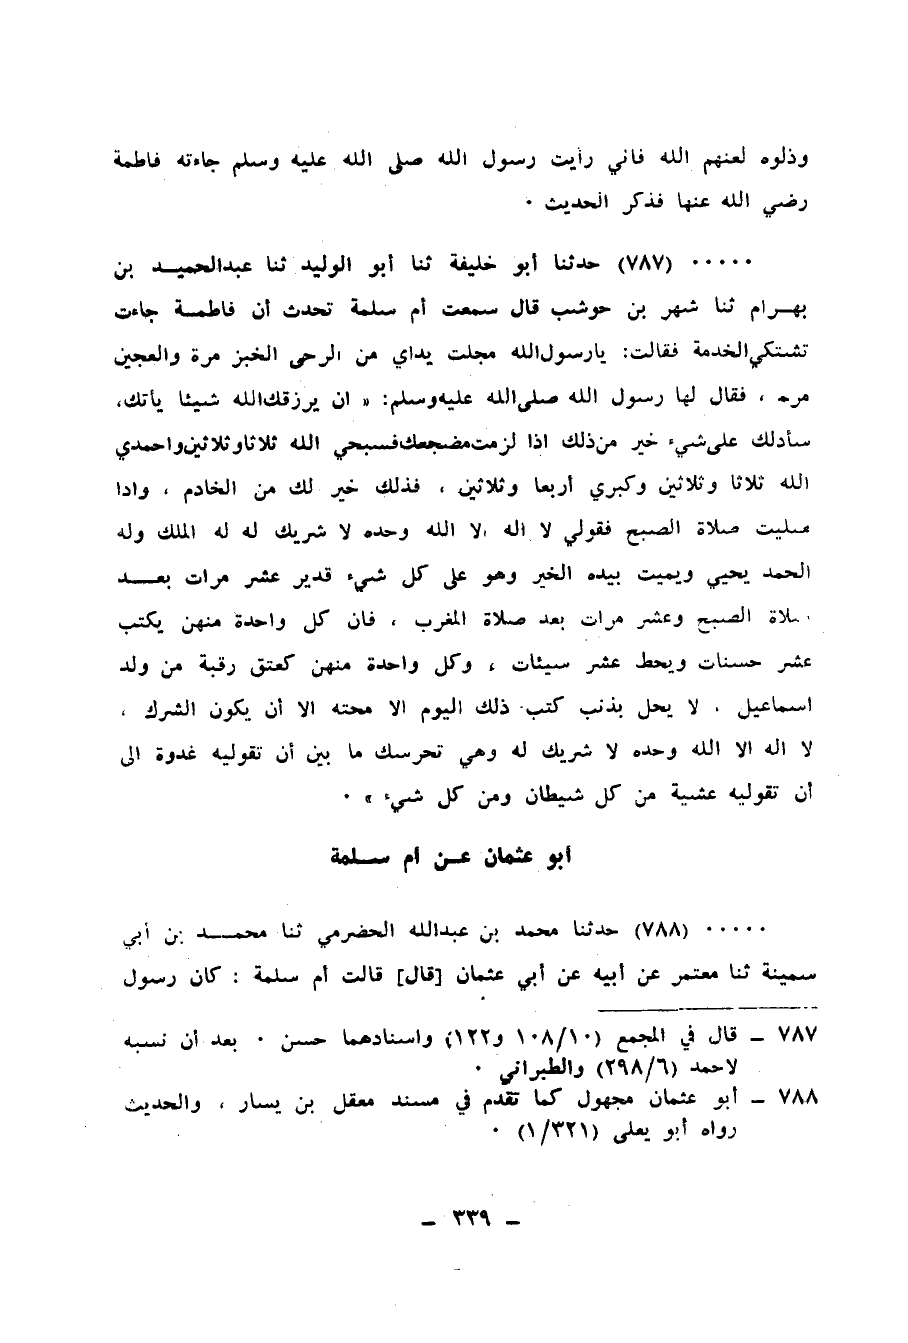 وذلوه لعنهم الله فاني رأيت رسول الله صلى الله عليه وسلم جاءته فاطمة
رضي الله عنها فذكر الحديث ٠
٠٠٠٠٠ (٧٨٧) حدثنا أبو خليفة ثنا أبو الوليد ثنا عبدالحميد بن
بهرام ثنا شهر بن حوشب قال سمعت أم سلمة تحدث أن فاطمة جاءت
تشتكي الخدمة فقالت: يارسول الله مجلت يداي من الرحى الخبز مرة والعجين
مرة ، فقال لها رسول الله صلى الله عليه وسلم: « ان يرزقك الله شيئا يأتك،
سأدلك على شيء خير من ذلك اذا لزمت مضجعك فسبحي الله ثلاثا وثلاثين واحمدي
الله ثلاثا وثلاثين وكبري أربعا وثلاثين ، فذلك خير لك من الخادم ، واذا
صليت صلاة الصبح فقولي لا اله الا الله وحده لا شريك له له الملك وله
الحمد يحيي ويميت بيده الخير وهو على كل شيء قدير عشر مرات بعد
صلاة الصبح وعشر مرات بعد صلاة المغرب ، فان كل واحدة منهن يكتب
عشر حسنات ويحط عشر سيئات ، وكل واحدة منهن كعتق رقبة من ولد
اسماعيل ، لا يحل بذنب كتب ذلك اليوم الا محته الا أن يكون الشرك ،
لا اله الا الله وحده لا شريك له وهي تحرسك ما بين أن تقوليه غدوة الى
أن تقوليه عشية من كل شيطان ومن كل شيء » ٠
أبو عثمان عن أم سلمة
٠٠٠٠٠ (٧٨٨) حدثنا محمد بن عبدالله الحضرمي ثنا محمد بن أبي
سمينة ثنا معتمر عن أبيه عن أبي عثمان [قال] قالت أم سلمة : كان رسول
٧٨٧ ـ قال في المجمع (١٠٨/١٠ و١٢٢) واسنادهما حسن ٠ بعد أن نسبه
لاحمد (٢٩٨/٦) والطبراني ٠
٧٨٨ ـ أبو عثمان مجهول كما تقدم في مسند معقل بن يسار ، والحديث
رواه أبو يعلى (١/٣٢١) ٠
ـ ٣٣٩ ـ